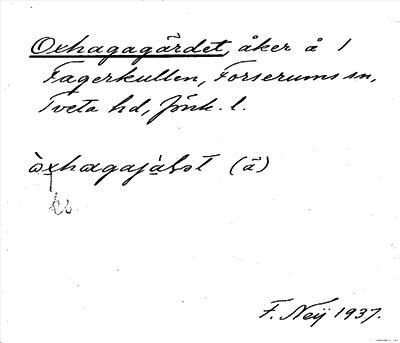 Oxhagagärdet, åker å 1
Fagerkullen, Forserums sn,
Tveta hd, Jönk. l.
(ä)
ks
F. Neij 1937.